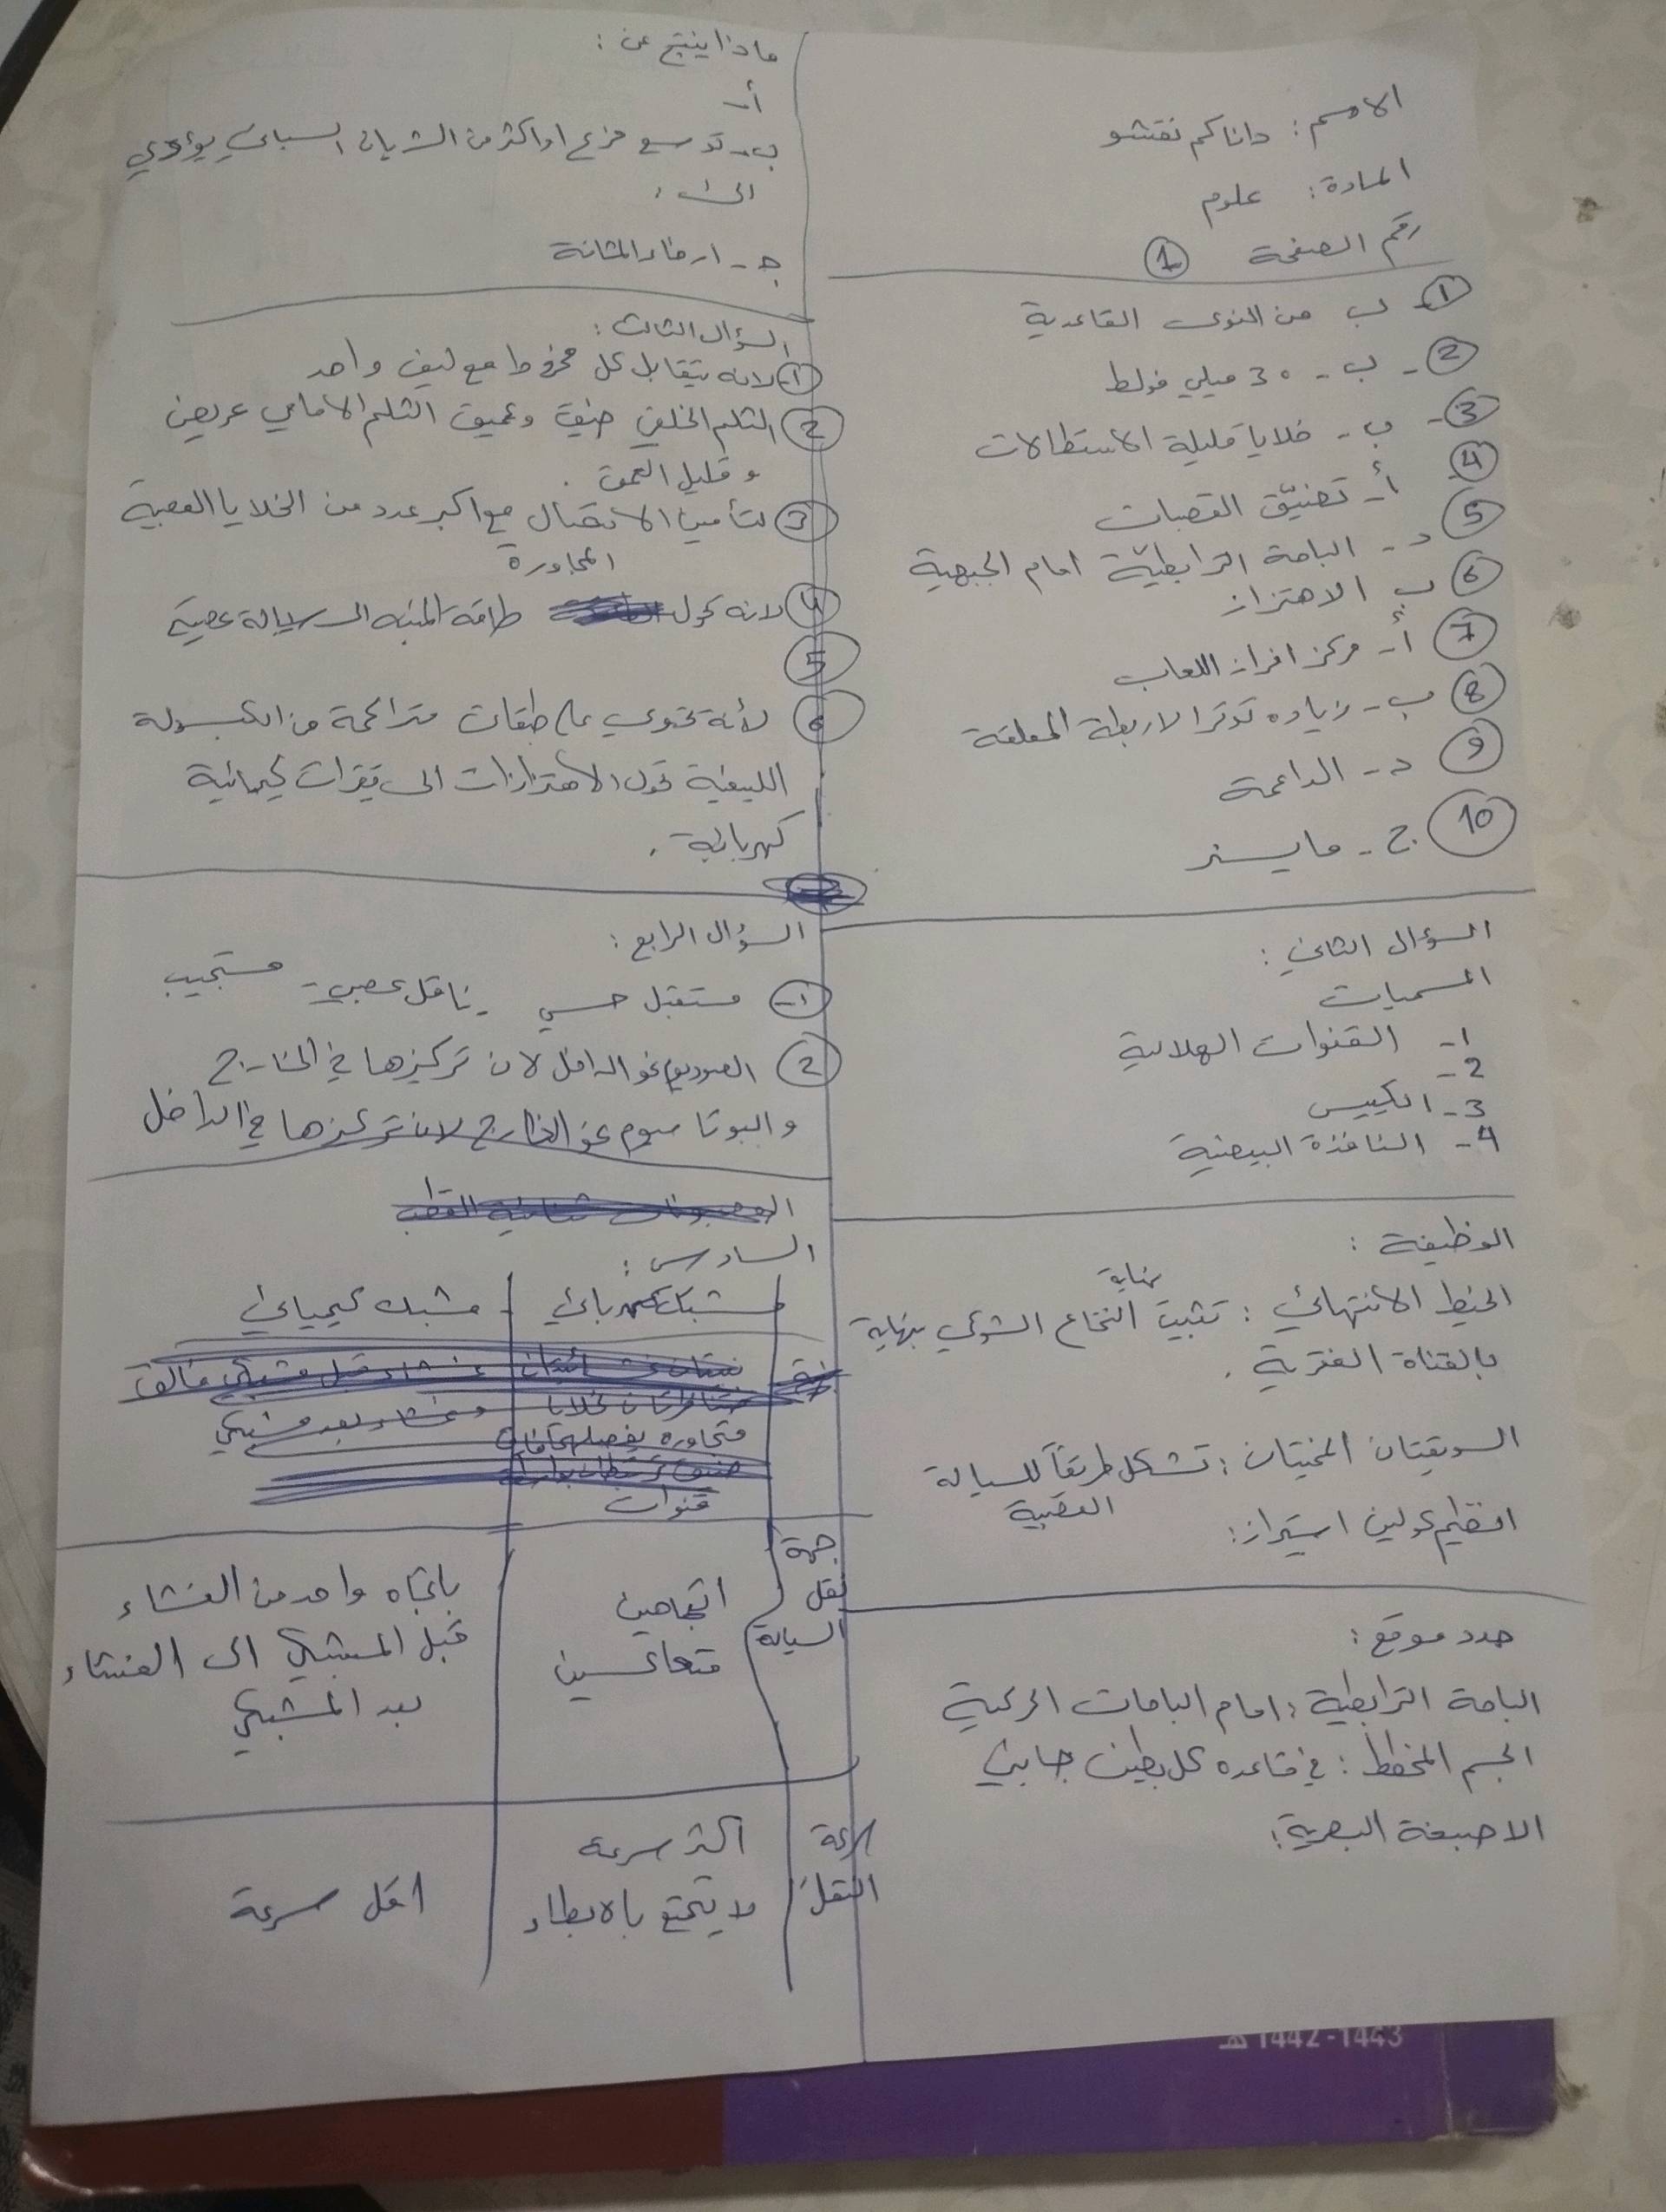 الاسم: دانا كم نقشو
المادة: علوم
رقم الصفحة 1
1- ب من النوى القاعدية
2- ب - 30 ميلي فولط
3- ب - خلايا قليلة الاستطالات
4 أ- تضيّق القصبات
5 د - الباحة الترابطيّة امام الجبهية
6 ب الاهتزاز
7 أ- مركز افراز اللعاب
8 ب - زياده توتر الاربطة المعلقة
9 د - الداعمة
10 ج - مايسنر
السؤال الثاني:
المسميات
1- القنوات الهلالية
2-
3- الكييس
4- النافذة البيضية
الوظيفة:
نهاية
الخيط الانتهائي: تثبيت النخاع الشوكي بنهاية
بالقناة الفقرية.
السويقتان المخيتان: تشكل طريقاً للسيالة
العصبية
انظيم كولين استيراز:
حدد موقع:
الباحة الترابطية: امام الباحات الحركية
الجسم المخطط: في قاعده كل بطين جانبي
الاصبغة البصرية:
ماذا ينتج عن:
أ-
ب- توسع فرع او اكثر من الشريان السباتي يؤدي
الى:
ج - ارخاء المثانة
السؤال الثالث:
1- لانه يتقابل كل مخروط مع ليف واحد
2 الثلم الخلفي ضيق وعميق الثلم الامامي عريض
و قليل العمق.
3 لتأمين الاتصال مع اكبر عدد من الخلايا العصبية
المجاورة
4 لانه تحول طاقة المنبه الى سيالة عصبية
5
6 لأنه تحوي على طبقات متراكمة من الكبسولة
الليفية تحول الاهتزازات الى تغيرات كيميائية
كهربائية.
السؤال الرابع:
1- مستقبل حسي - ناقل عصبي - مستجيب
2 الصوديوم نحو الداخل لان تركيزها في الخارج
و البوتاسيوم نحو الخارج لان تركيزها في الداخل
السادس:
مشبك كهربائي مشبك كيميائي
قنوات
جهة نقل السيالة
اتجاهين متعاكسين
باتجاه واحد من الغشاء
قبل المشبكي الى الغشاء
بعد المشبكي
سرعة النقل
اكثر سرعة
لا يتمتع بالابطاء
اقل سرعة
1442-1443 هـ